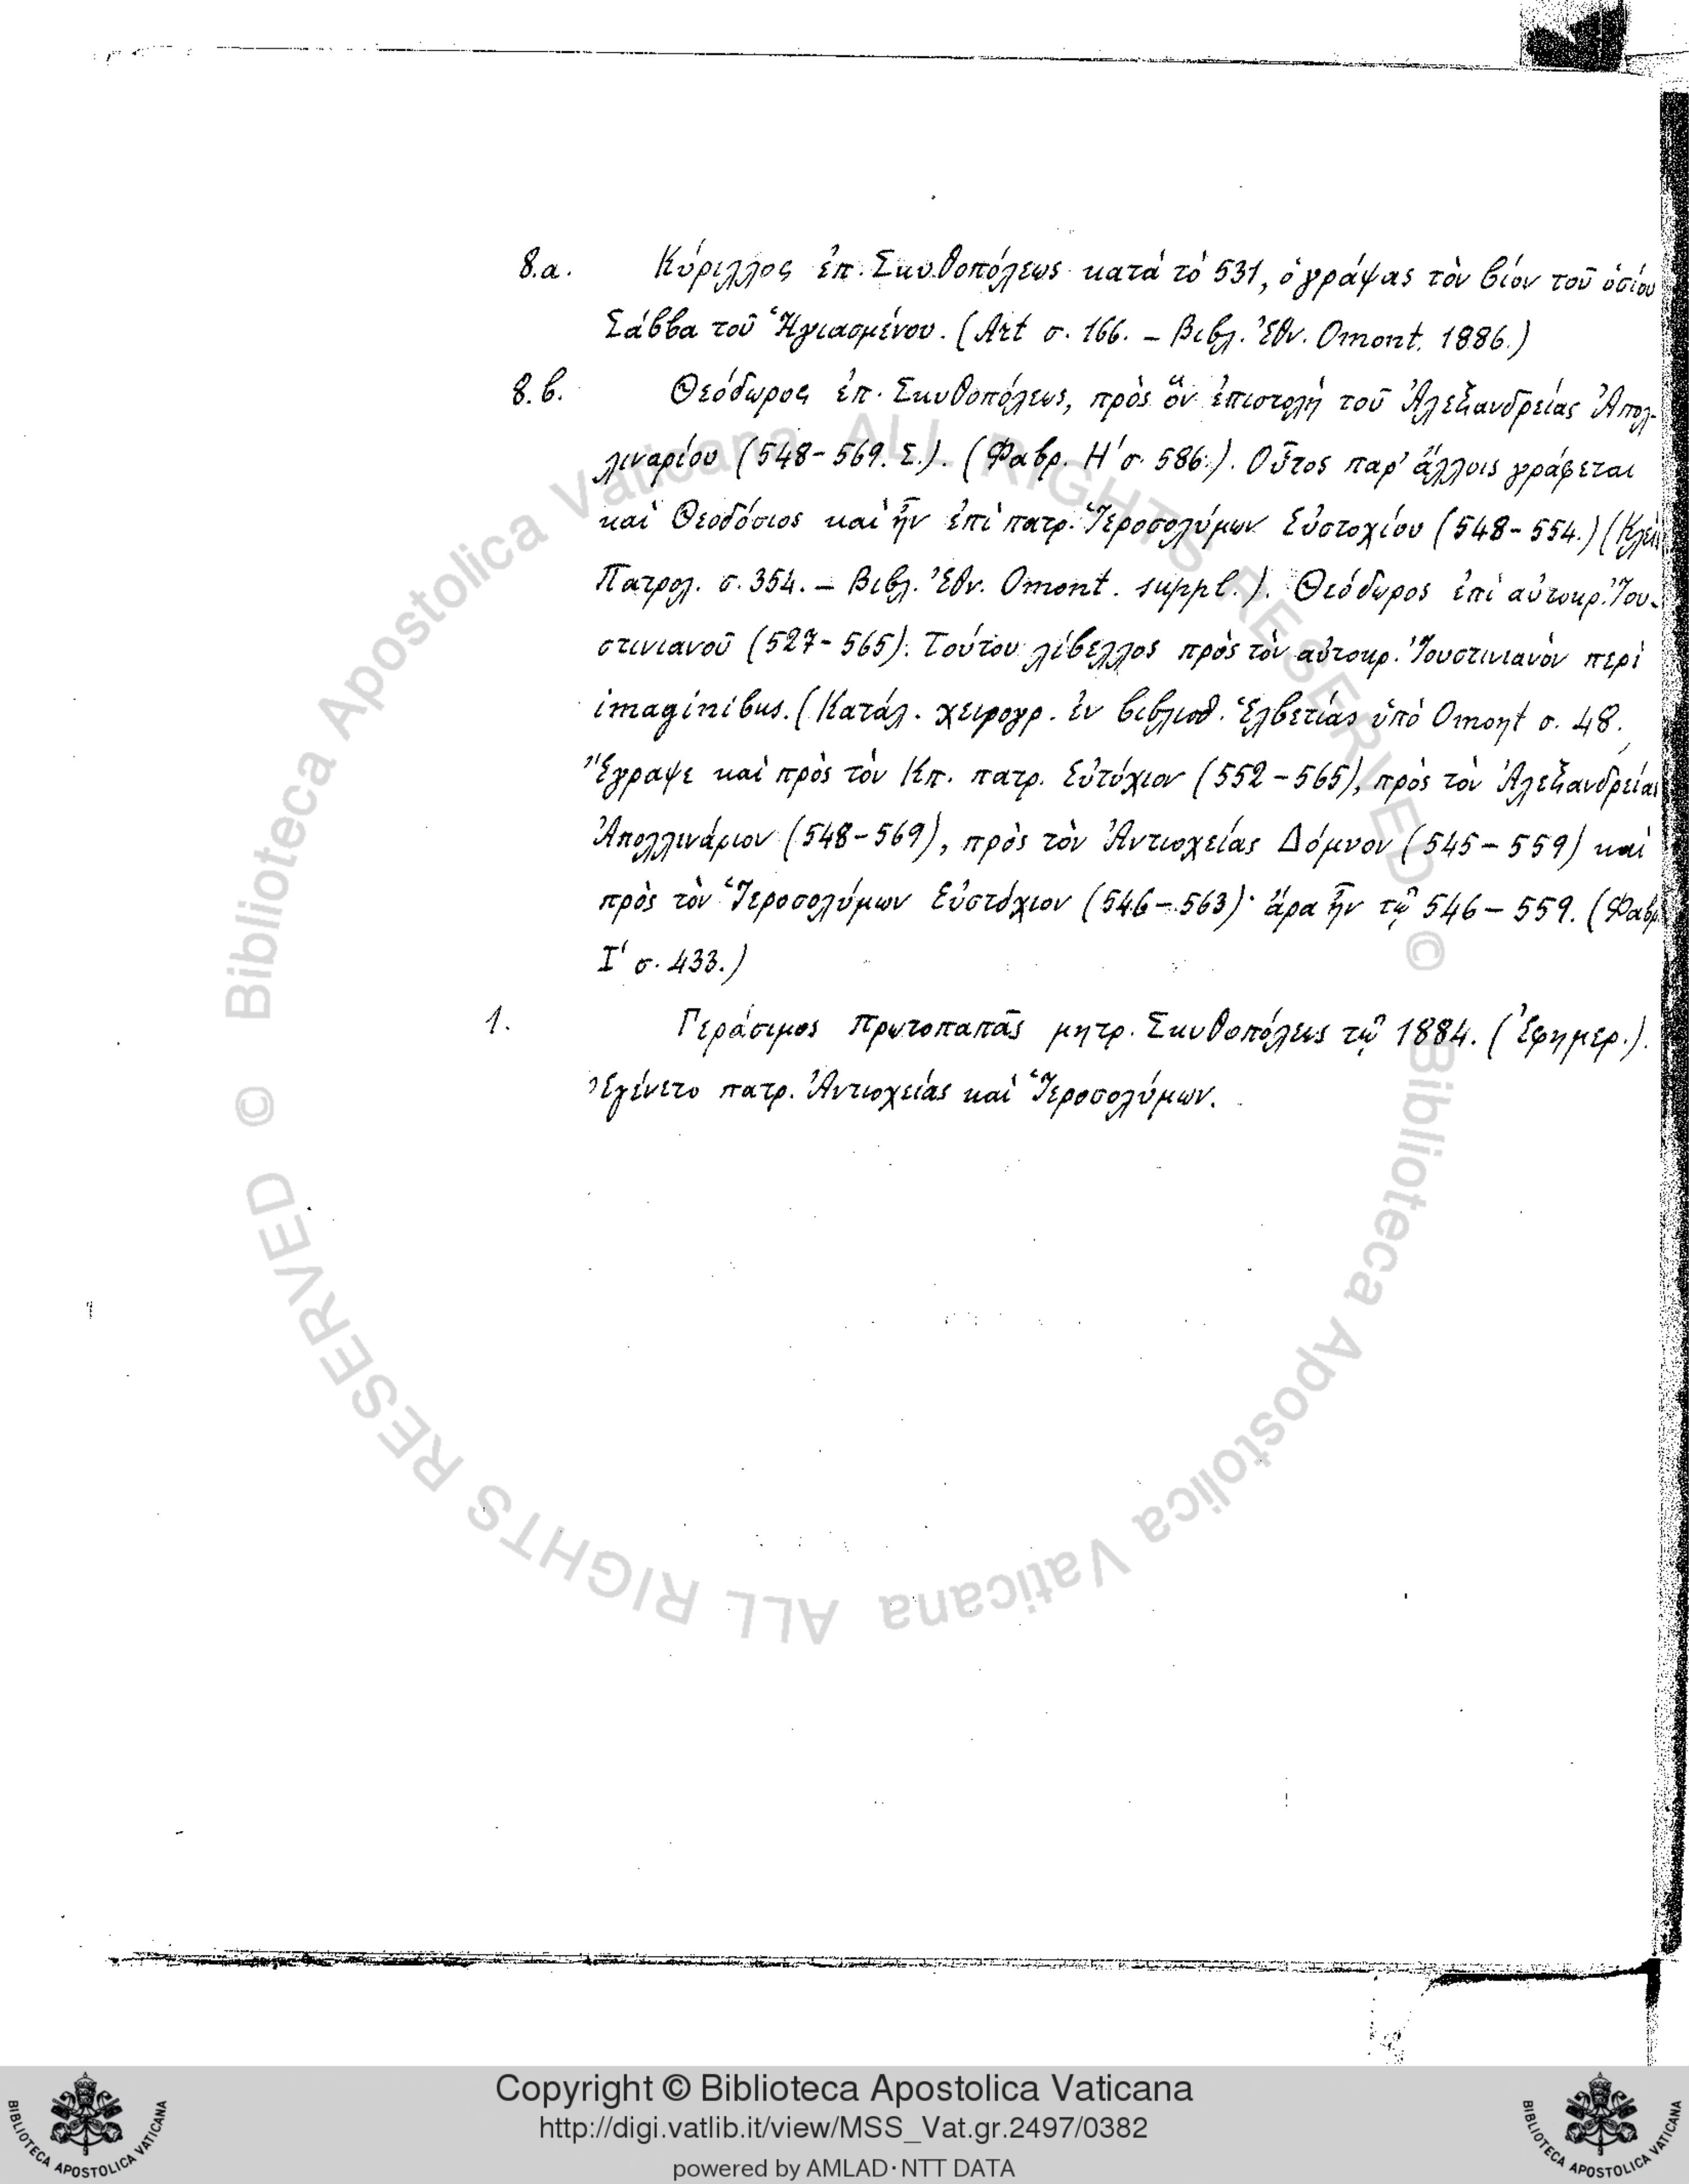 8.a. Κύριλλος ἐπ. Σκυθοπόλεως κατὰ τὸ 531, ὁ γράψας τὸν βίον τοῦ ὁσίου
Σάββα τοῦ Ἡγιασμένου. (Art σ. 166. – Βιβλ. Ἐθν. Omont. 1886.)
8.β. Θεόδωρος ἐπ. Σκυθοπόλεως, πρὸς ὃν ἐπιστολὴ τοῦ Ἀλεξανδρείας Ἀπολ-
λιναρίου (548-569. Σ.). (Φαβρ. Η' σ. 586.). Οὗτος παρ' ἄλλοις γράφεται
καὶ Θεοδόσιος καὶ ἦν ἐπὶ πατρ. Ἱεροσολύμων Εὐστοχίου (548-554.) (Κλείς
Πατρολ. σ. 354. – Βιβλ. Ἐθν. Omont. suppl.). Θεόδωρος ἐπὶ αὐτοκρ. Ἰου-
στινιανοῦ (527-565). Τούτου λίβελλος πρὸς τὸν αὐτοκρ. Ἰουστινιανὸν περὶ
imaginibus. (Κατάλ. χειρογρ. ἐν βιβλιοθ. Ἑλβετίας ὑπὸ Omont σ. 48.
Ἔγραψε καὶ πρὸς τὸν Κπ. πατρ. Εὐτύχιον (552-565), πρὸς τὸν Ἀλεξανδρείας
Ἀπολλινάριον (548-569), πρὸς τὸν Ἀντιοχείας Δόμνον (545-559) καὶ
πρὸς τὸν Ἱεροσολύμων Εὐστόχιον (546-563)· ἄρα ἦν τῷ 546-559. (Φαβρ.
Ι' σ. 433.)
1. Γεράσιμος Πρωτοπαπᾶς μητρ. Σκυθοπόλεως τῷ 1884. (Ἐφημερ.).
Ἐγένετο πατρ. Ἀντιοχείας καὶ Ἱεροσολύμων.
© Biblioteca Apostolica Vaticana ALL RIGHTS RESERVED
© Biblioteca Apostolica Vaticana ALL RIGHTS RESERVED
Copyright © Biblioteca Apostolica Vaticana
http://digi.vatlib.it/view/MSS_Vat.gr.2497/0382
powered by AMLAD·NTT DATA
BIBLIOTECA APOSTOLICA VATICANA
BIBLIOTECA APOSTOLICA VATICANA